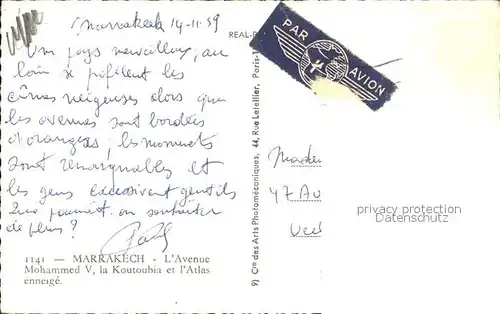 Marrakech 14-11.59
Un pays merveilleux, au
loin se profilent les
cîmes neigeuses alors que
les avenues sont bordées
d'orangers; les monuments
sont remarquables et
les gens excessivent gentils
Que pourrait-on souhaiter
de plus?
1141 — MARRAKECH - L'Avenue
Mohammed V, la Koutoubia et l'Atlas
enneigé.
REAL-P
9) Cie des Arts Photomécaniques, 44, Rue Letellier, Paris-1
PAR AVION
47 Av
privacy protection
Datenschutz